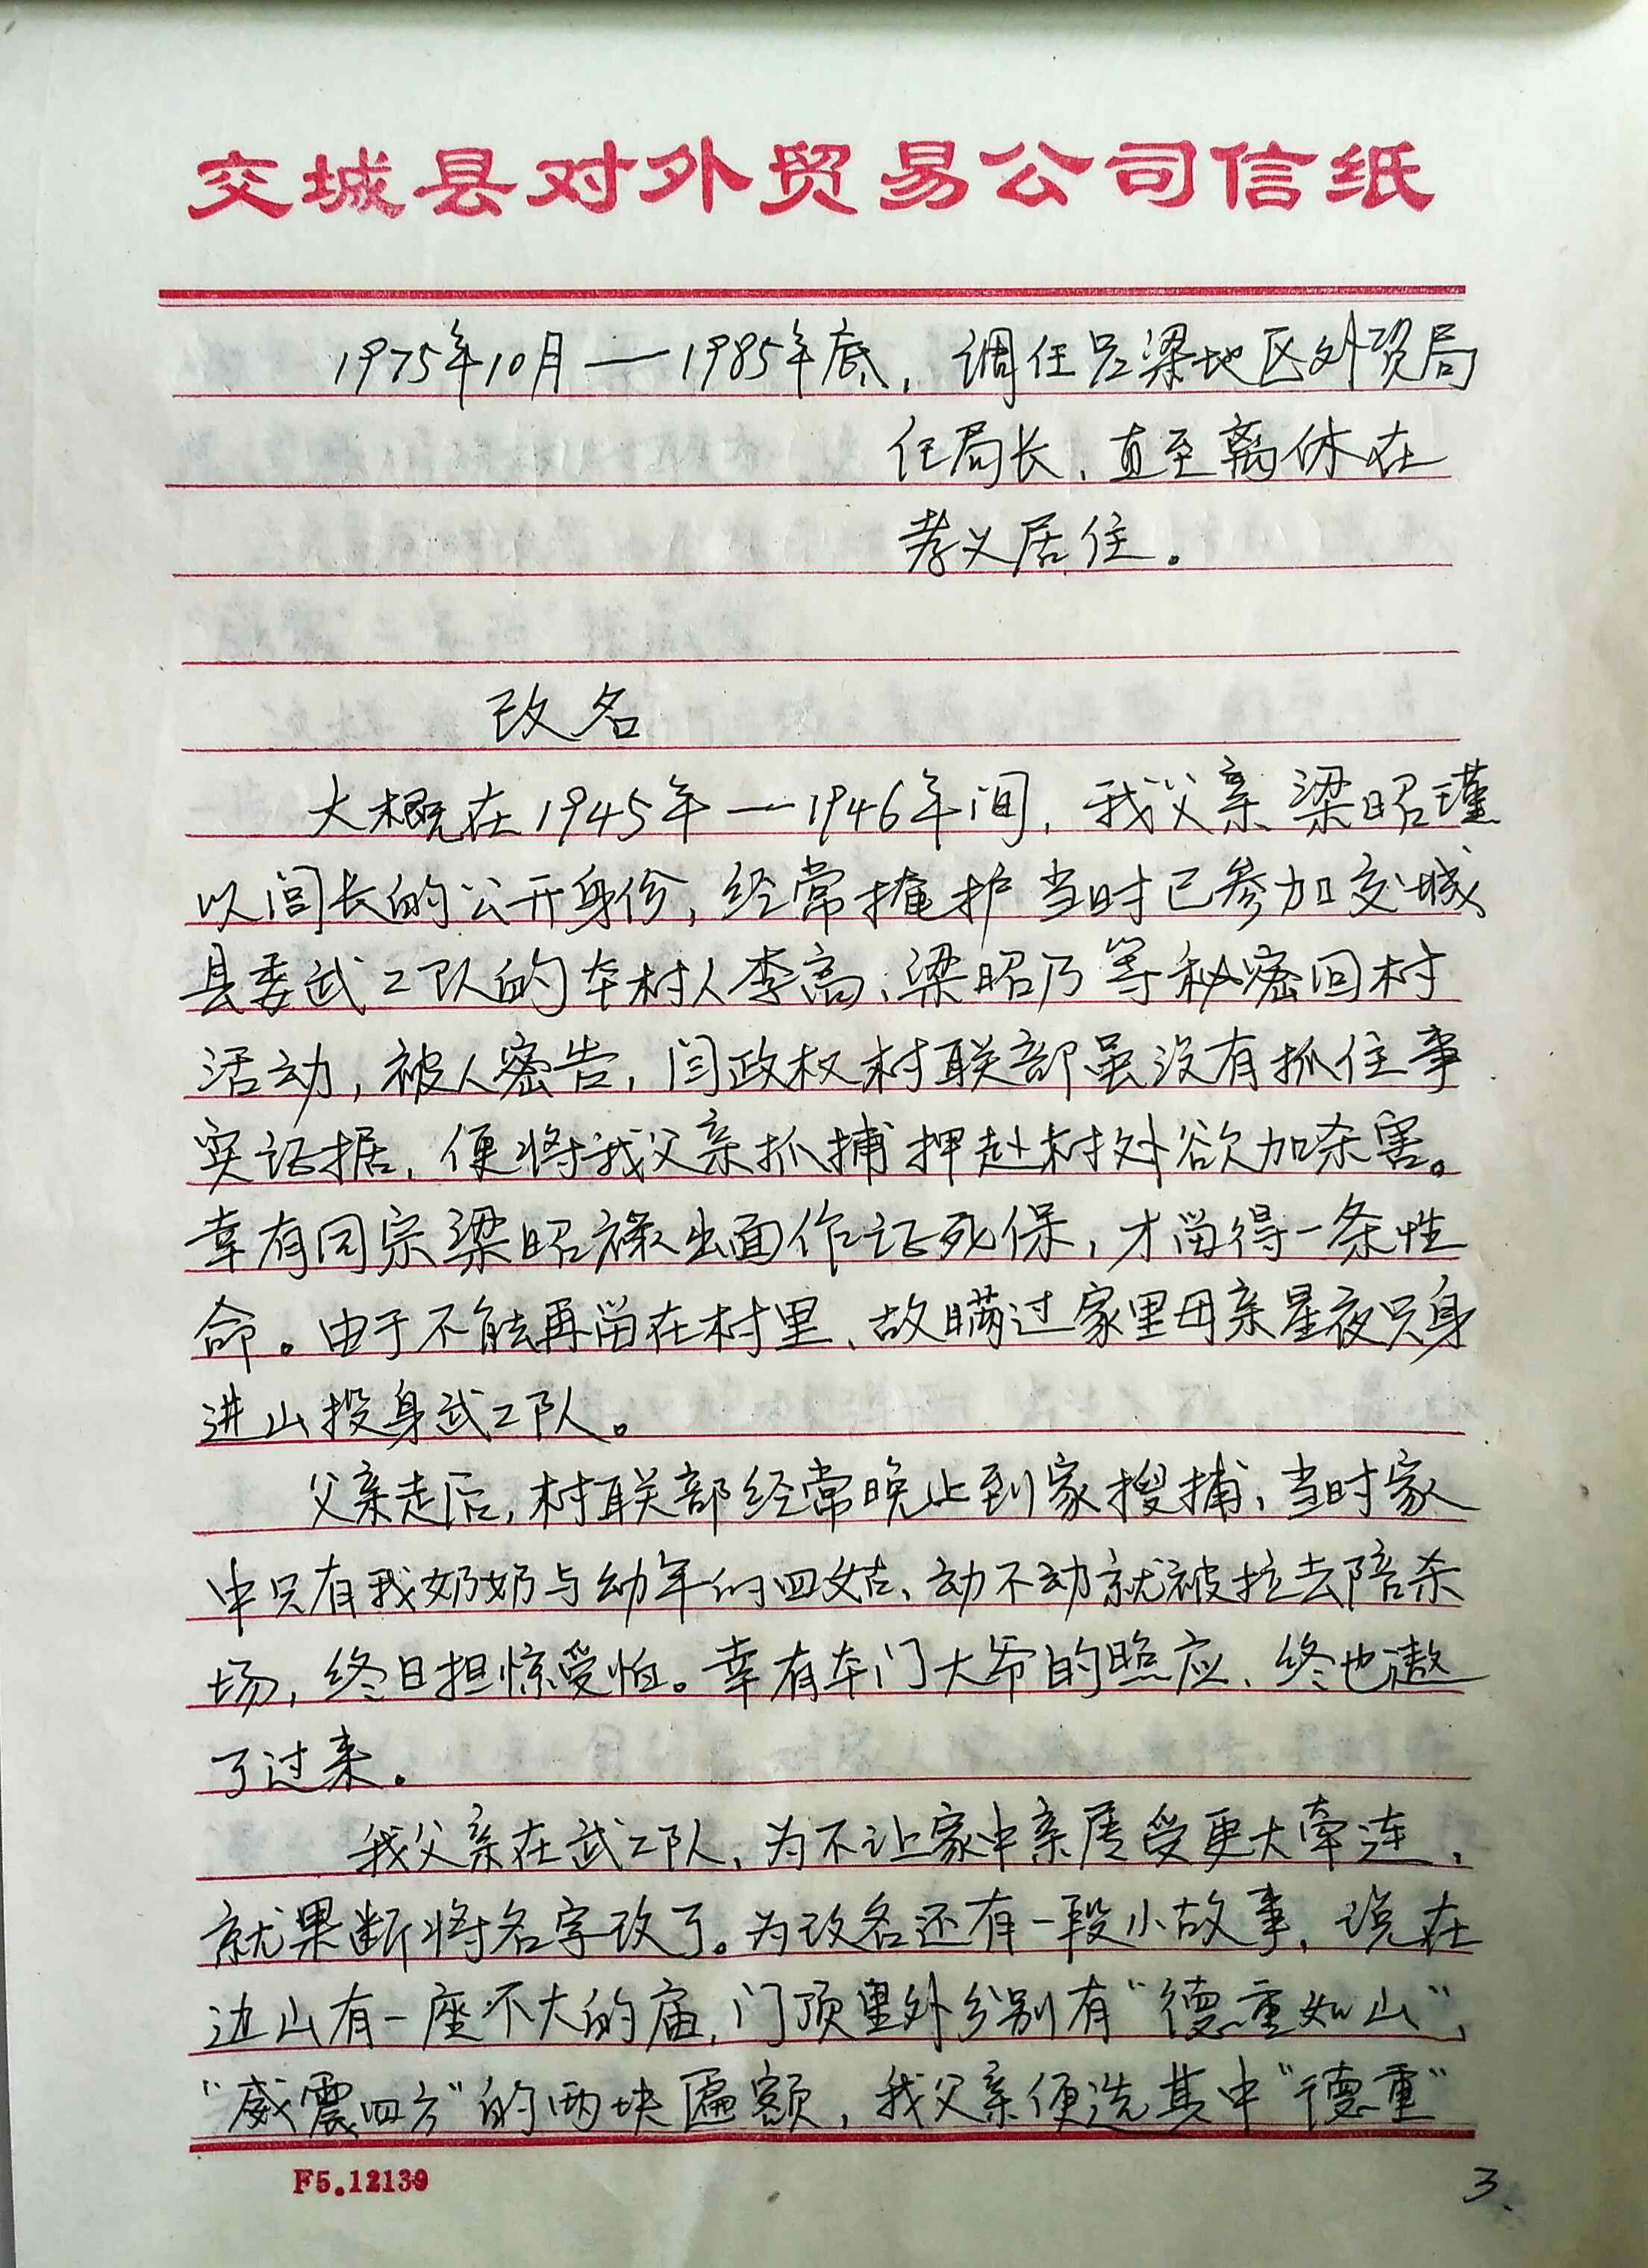 交城县对外贸易公司信纸
1975年10月——1985年底，调任吕梁地区外贸局
任局长、直至离休在
孝义居住。
改名
大概在1945年—1946年间，我父亲梁昭瑾
以闾长的公开身份，经常掩护当时已参加交城
县委武工队的本村人李高、梁昭乃等秘密回村
活动，被人密告，闫政权村联部虽没有抓住事
实证据，便将我父亲抓捕押赴村外欲加杀害。
幸有同宗梁昭禄出面作证死保，才留得一条性
命。由于不能再留在村里、故瞒过家里母亲星夜只身
进山投身武工队。
父亲走后，村联部经常晚上到家搜捕、当时家
中只有我奶奶与幼年的四姑、动不动就被拉去陪杀
场，终日担惊受怕。幸有本门大爷的照应、终也熬
了过来。
我父亲在武工队、为不让家中亲属受更大牵连，
就果断将名字改了。为改名还有一段小故事，说在
边山有一座不大的庙，门顶里外分别有“德重如山”、
“威震四方”的两块匾额，我父亲便选其中“德重”
F5.12139
3、